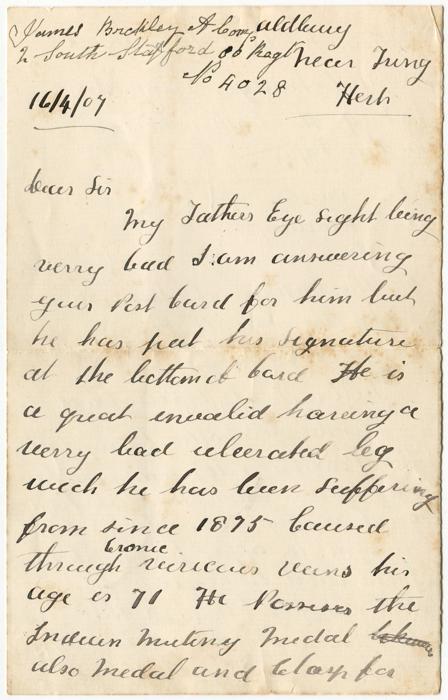 James Brickley A Comy
2 South Stafford 80 Regt
No 4028
aldbury
near Tring
Herts
16/4/07
Dear Sir
My Fathers Eye sight being
verry bad I am answering
your Post Card for him but
he has put his signature
at the bottom of Card He is
a great invalid haveing a
verry bad ulcerated leg
wich he has been suffering
from since 1875 Caused
through Cronic vericous veins his
age is 71 He Posseses the
Indian Mutiny Medal
also Medal and Clasp for